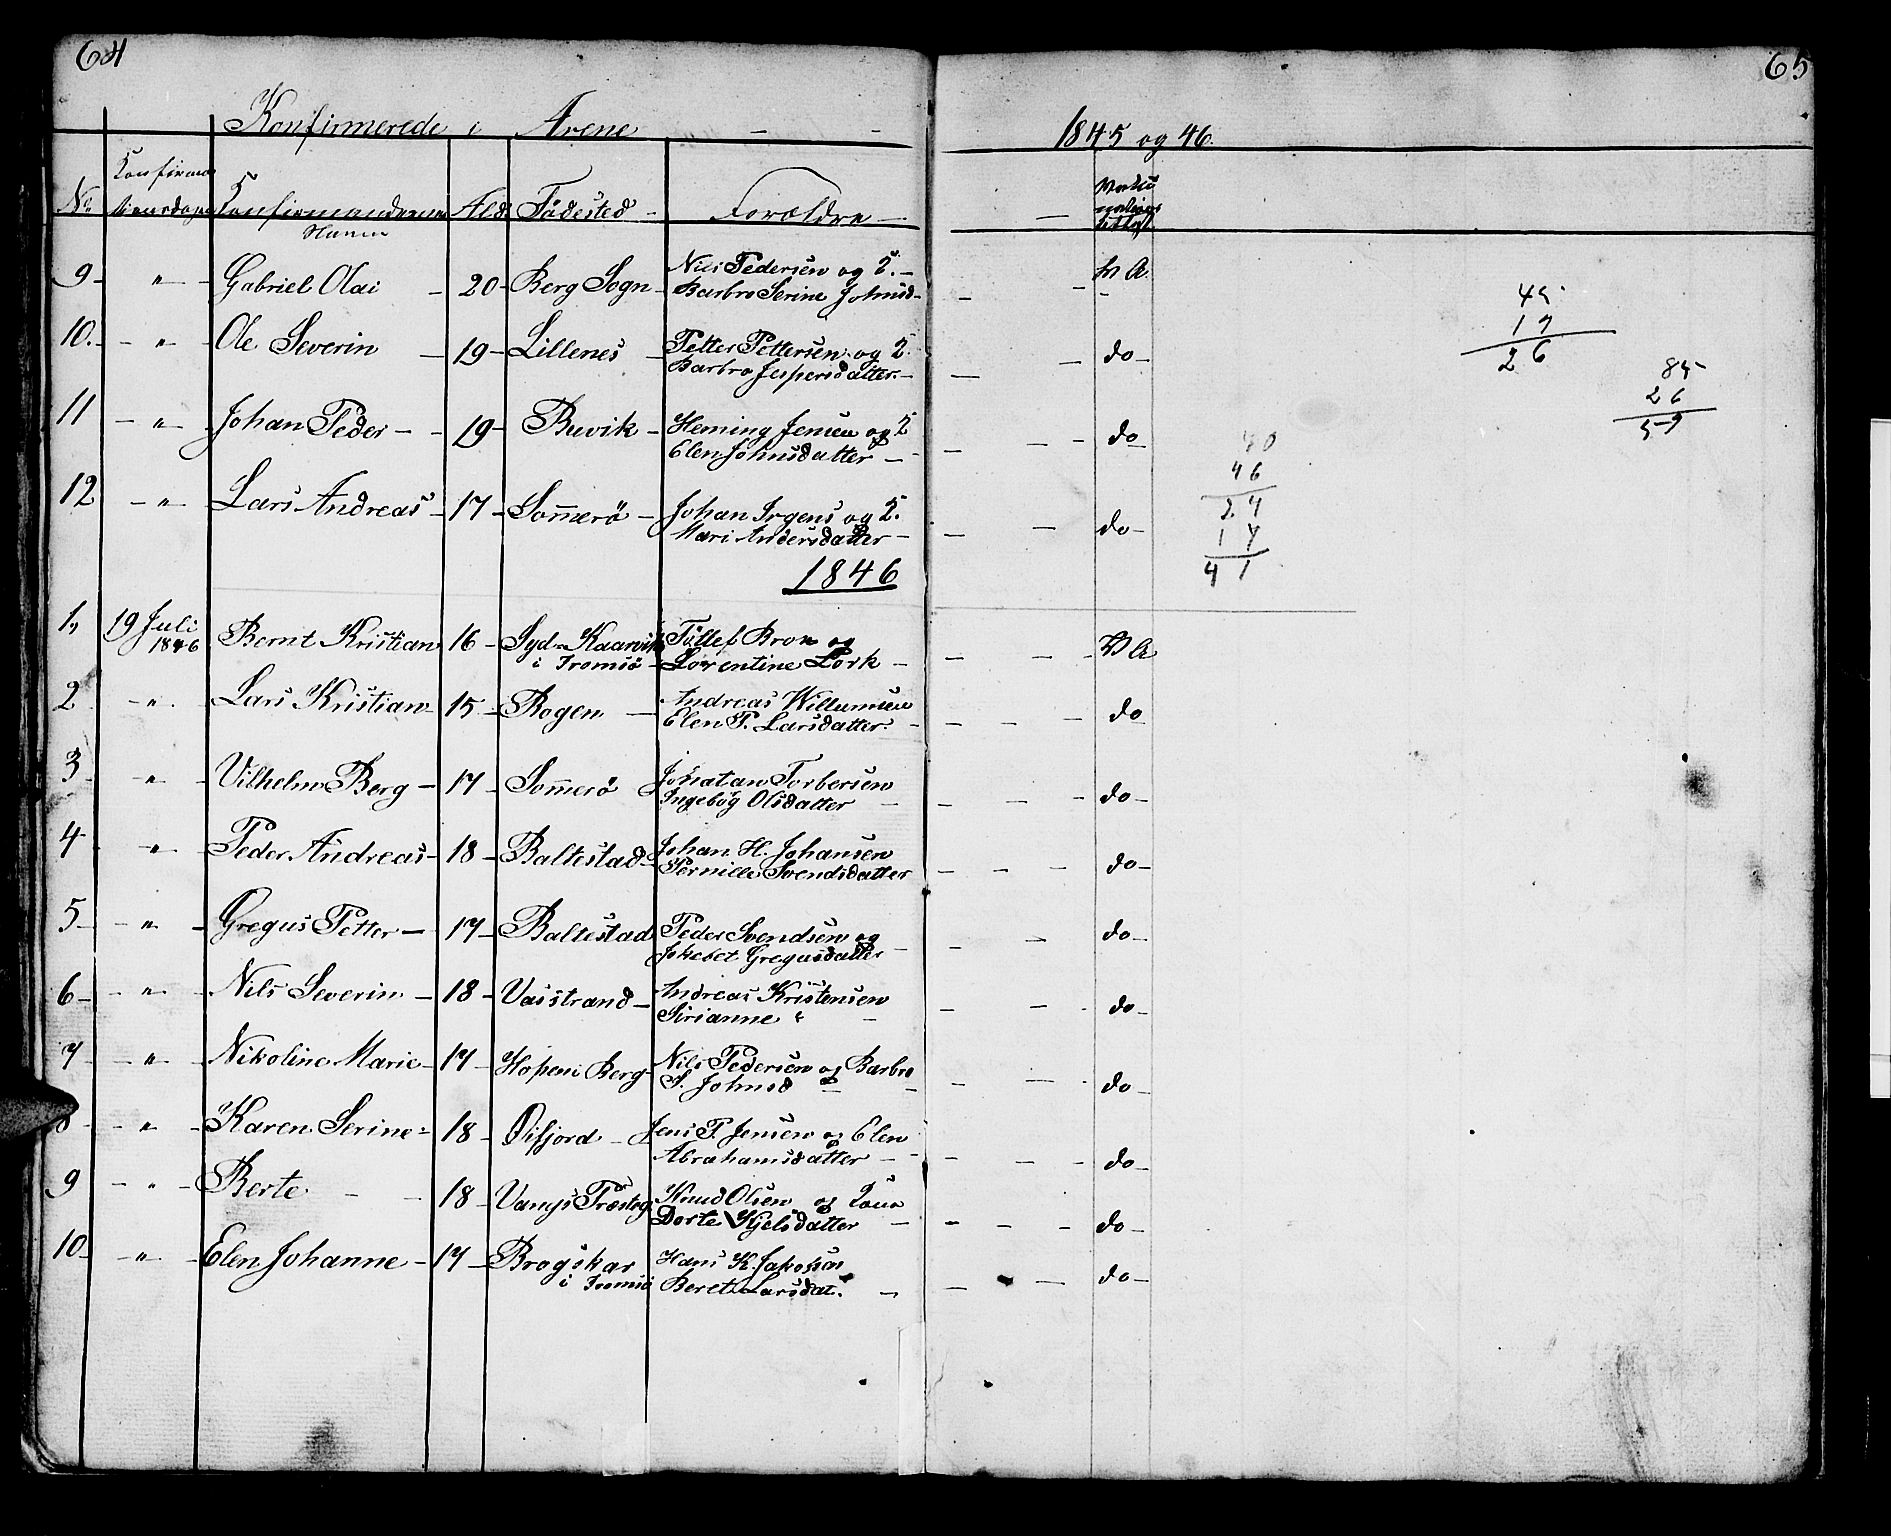 64
65
Konfirmerede i Arene
1845 og 46.
No. Konfirma tionsdagen Konfirmandernes Navn Ald. Födested Forældre
9 " Gabriel Olai 20 Berg Sogn Nils Pedersen og
Barbro Serine Johnsd.
V A.
10. " Ole Severin 19 Lillenes Petter Pettersen og
Barbro Jespersdatter.
do
11 " Johan Peder 19 Buvik Heming Jensen og
Elen Johnsdatter
do
12 " Lars Andreas 17 Sommerö Johan Irgens og
Mari Andersdatter
do
1846
1. 19 Juli 1846 Bernt Kristian 16 Syd-Kaarvik i Tromsö Tollef Brox og
Lorentine Lork
V A
2 " Lars Kristian 15 Bogen Andreas Willumsen
Elen P. Larsdatter.
do
3 " Vilhelm Berg 17 Sommerö Jonatan Torbersen
Ingebög Olsdatter
do
4 " Peder Andreas 18 Baltestad Johan H. Johansen
Pernille Svendsdatter
do
5 " Gregus Petter 17 Baltestad Peder Svendsen og
Jokebet Gregusdatter
do
6 " Nils Severin 18 Vasstrand Andreas Kristensen
Sirianne "
do
7 " Nikoline Marie 17 Hopen i Berg Nils Pedersen og Barbro
S. Johnsd
do
8 " Karen Serine 18 Öifjord Jens P. Jensen og Elen
Abrahamsdatter
do
9 " Berte 18 Vangs Præsteg Knud Olsen og Kone
Dorte Kjelsdatter
do
10 " Elen Johanne 17 Brogskar i Tromsö Hans K. Jakobsen
Beret Larsdat.
do
45
17
26
85
26
59
70
46
24
17
41